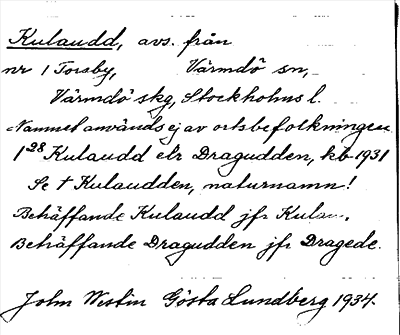 Kulaudd, avs. från
nr 1 Torsby, Värmdö sn,
Värmdö skg, Stockholms l.
Namnet användes ej av ortsbefolkningen.
1²⁸ Kulaudd elr Dragudden, kb 1931
Se † Kulaudden, naturnamn!
Behäffande Kulaudd jfr Kulan.
Behäffande Dragudden jfr Dragede.
John Westin Gösta Lundberg 1934.